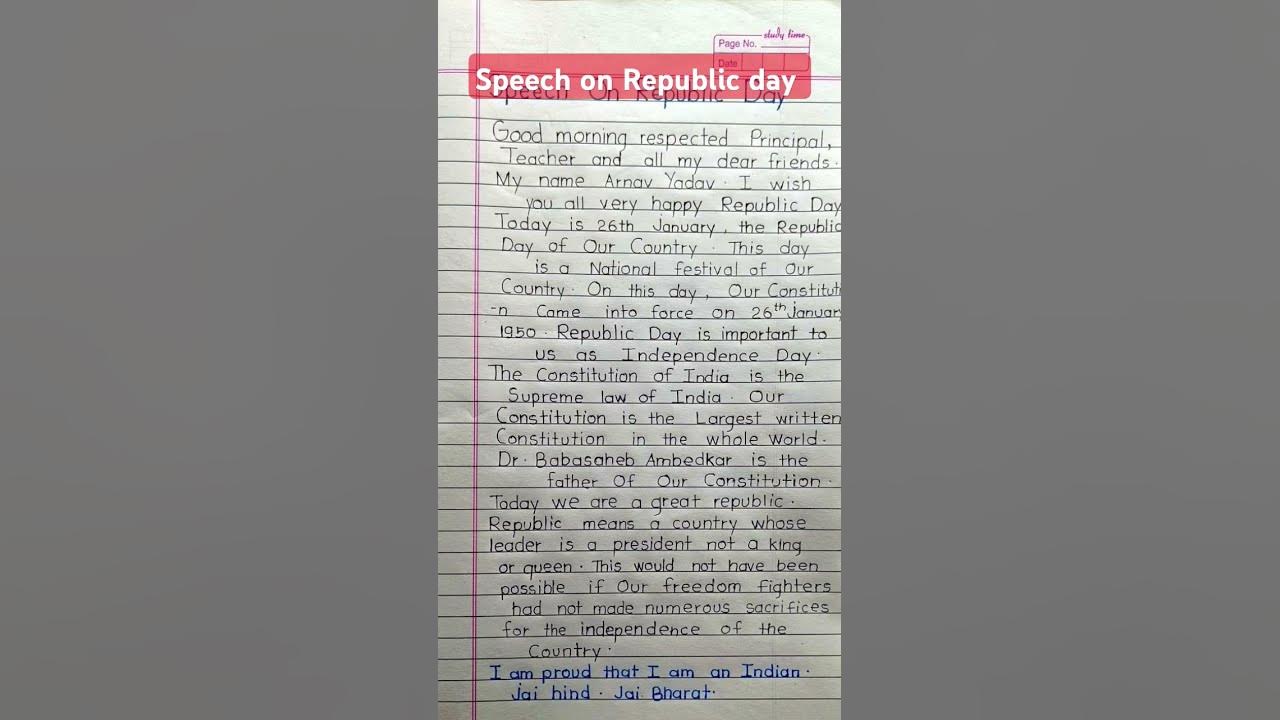 study time
Page No.
Date
Speech on Republic day
Speech On Republic Day
Good morning respected Principal,
Teacher and all my dear friends.
My name Arnav Yadav. I wish
you all very happy Republic Day
Today is 26th January, the Republic
Day of Our Country. This day
is a National festival of Our
Country. On this day, Our Constitutio
-n Came into force on 26th January
1950. Republic Day is important to
us as Independence Day.
The Constitution of India is the
Supreme law of India. Our
Constitution is the Largest written
Constitution in the whole World.
Dr. Babasaheb Ambedkar is the
father Of Our Constitution.
Today we are a great republic.
Republic means a country whose
leader is a president not a king
or queen. This would not have been
possible if Our freedom fighters
had not made numerous sacrifices
for the independence of the
Country.
I am proud that I am an Indian.
Jai hind. Jai Bharat.